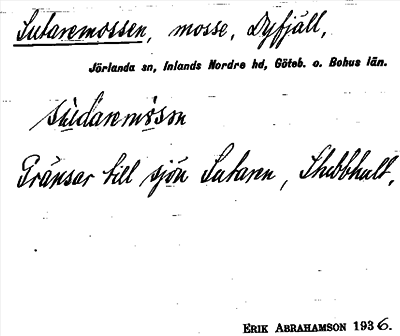 Sutaremossen, mosse, Dyfjäll,
Jörlanda sn, Inlands Nordre hd, Göteb. o. Bohus län.
Gränsar till sjön Sutaren, Stubbhult.
ERIK ABRAHAMSON 1936.